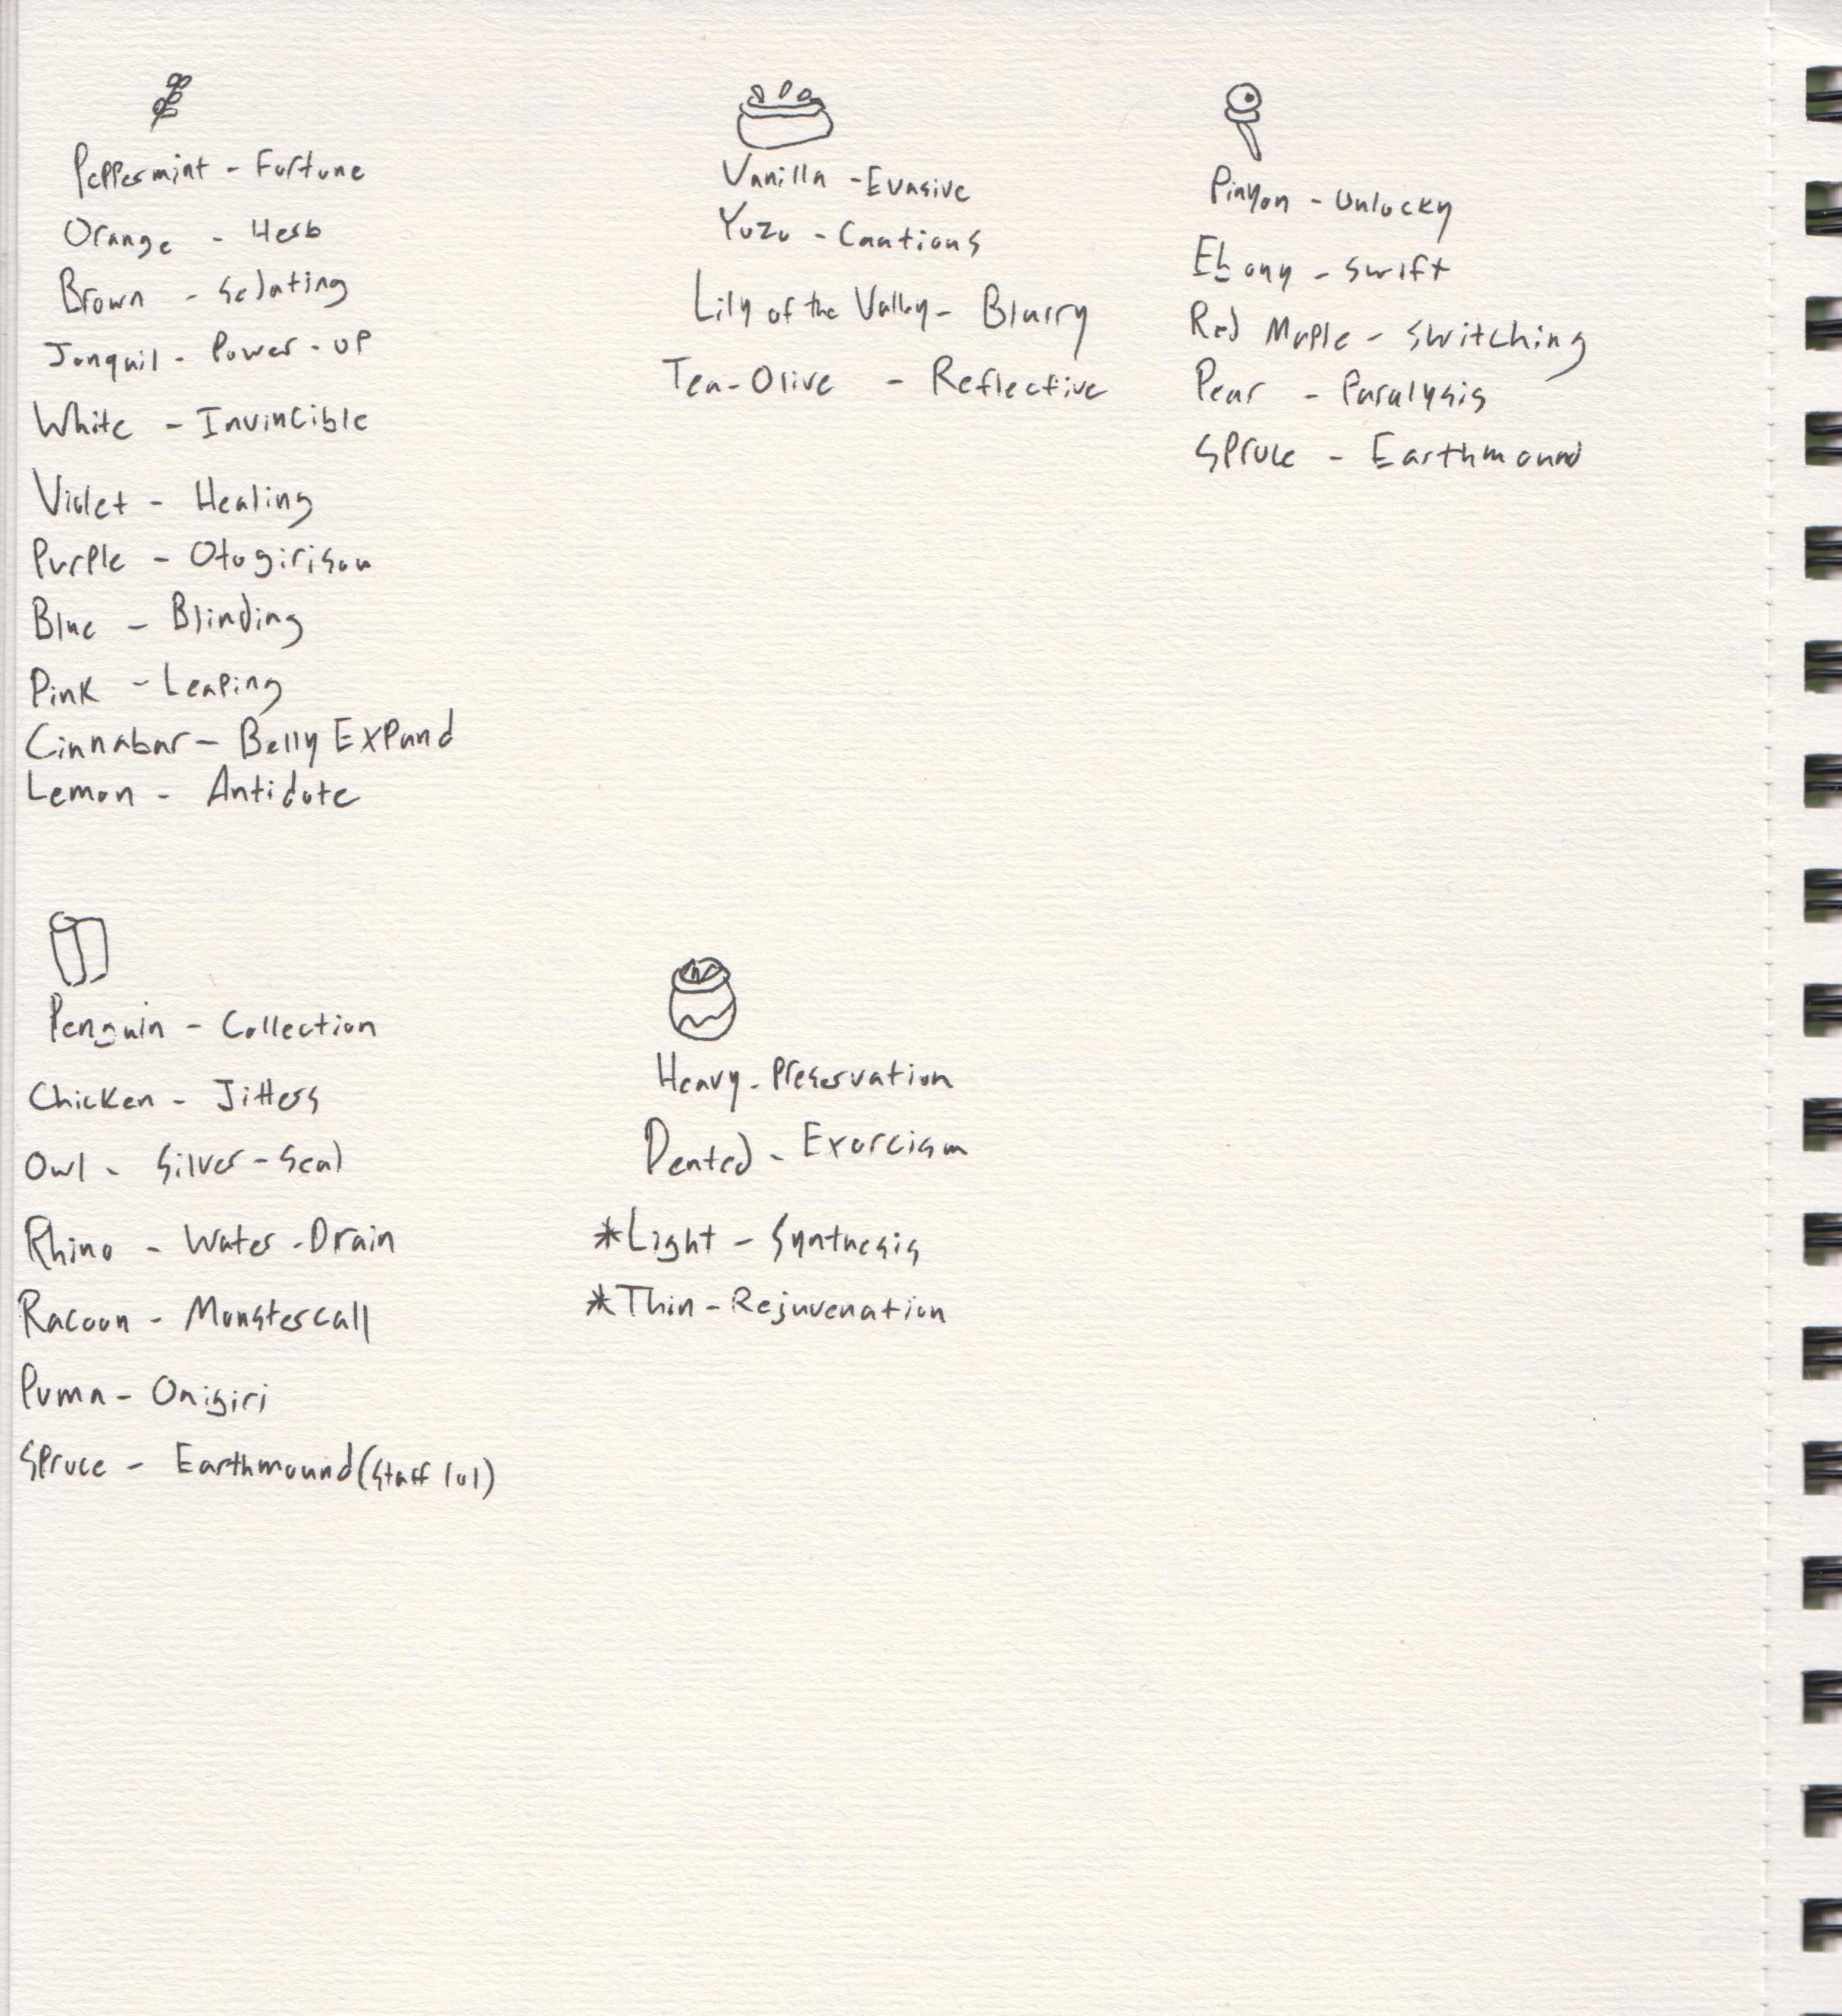 Peppermint - Fortune
Orange - Herb
Brown - Sedating
Jonquil - Power-up
White - Invincible
Violet - Healing
Purple - Otogirisou
Blue - Blinding
Pink - Leaping
Cinnabar - Belly Expand
Lemon - Antidote
Vanilla - Evasive
Yuzu - Cautious
Lily of the Valley - Blurry
Tea-Olive - Reflective
Pinyon - Unlucky
Ebony - Swift
Red Maple - Switching
Pear - Paralysis
Spruce - Earthmound
Penguin - Collection
Chicken - Jitters
Owl - Silver-Seal
Rhino - Water-Drain
Racoon - Monstercall
Puma - Onigiri
Spruce - Earthmound (Staff lol)
Heavy - Preservation
Dented - Exorcism
*Light - Synthesis
*Thin - Rejuvenation